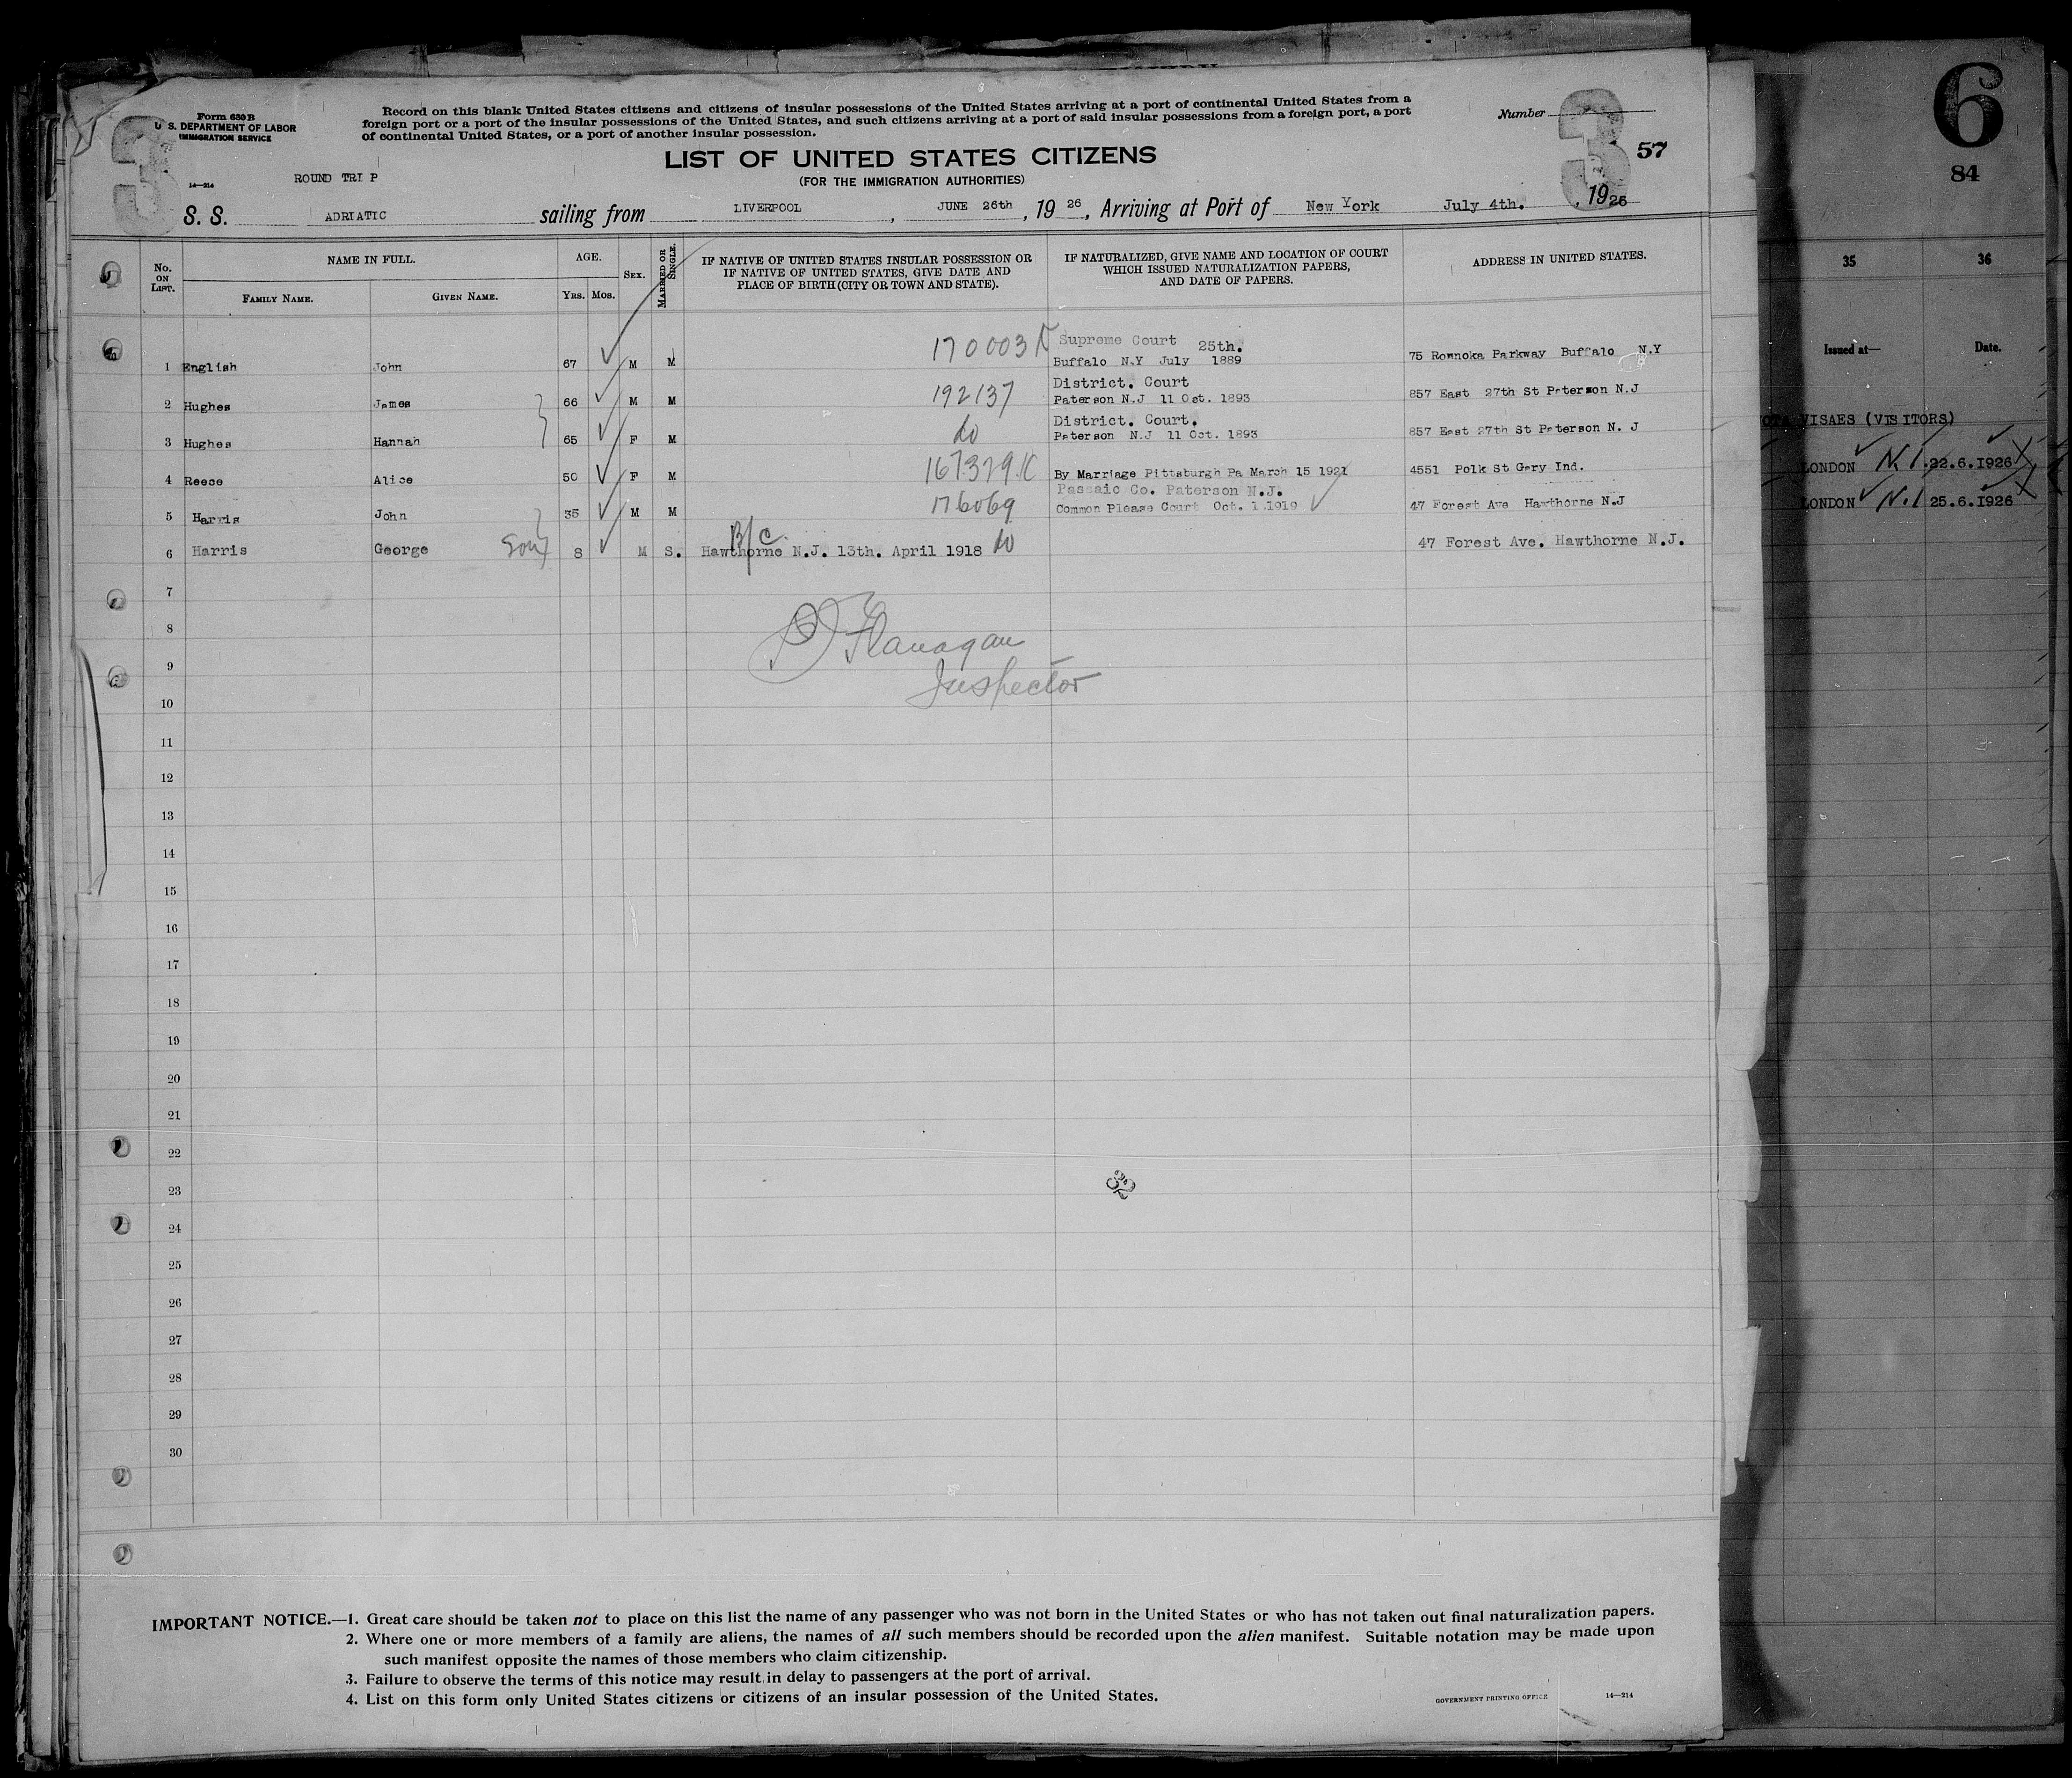 Form 630 B
U. S. DEPARTMENT OF LABOR
IMMIGRATION SERVICE
14—214
3
Record on this blank United States citizens and citizens of insular possessions of the United States arriving at a port of continental United States from a
foreign port or a port of the insular possessions of the United States, and such citizens arriving at a port of said insular possessions from a foreign port, a port
of continental United States, or a port of another insular possession.
Number
3
57
LIST OF UNITED STATES CITIZENS
(FOR THE IMMIGRATION AUTHORITIES)
ROUND TRI P
S. S. ADRIATIC sailing from LIVERPOOL, JUNE 26th, 19 26, Arriving at Port of New York July 4th., 1926
No. ON LIST.
NAME IN FULL.
FAMILY NAME. GIVEN NAME.
AGE.
YRS. MOS.
SEX.
MARRIED OR SINGLE.
IF NATIVE OF UNITED STATES INSULAR POSSESSION OR
IF NATIVE OF UNITED STATES, GIVE DATE AND
PLACE OF BIRTH (CITY OR TOWN AND STATE).
IF NATURALIZED, GIVE NAME AND LOCATION OF COURT
WHICH ISSUED NATURALIZATION PAPERS,
AND DATE OF PAPERS.
ADDRESS IN UNITED STATES.
170003 Supreme Court 25th.
1 English John 67 M M Buffalo N.Y July 1889 75 Rownoka Parkway Buffalo N.Y
192137 District. Court
2 Hughes James 66 M M Paterson N.J 11 Oct. 1893 857 East 27th St Paterson N.J
do District. Court.
3 Hughes Hannah 65 F M Paterson N.J 11 Oct. 1893 857 East 27th St Paterson N. J
4 Reese Alice 50 F M 167379 By Marriage Pittsburgh Pa March 15 1921 4551 Polk St Gary Ind.
176069 Passaic Co. Paterson N.J.
5 Harris John 35 M M Common Please Court Oct. 1.1919 47 Forest Ave Hawthorne N.J
B/C
6 Harris George Son 8 M S. Hawthorne N.J. 13th. April 1918 do 47 Forest Ave. Hawthorne N.J.
7
8
Flanagan
9
Inspector
10
11
12
13
14
15
16
17
18
19
20
21
22
23
32
24
25
26
27
28
29
30
IMPORTANT NOTICE.—1. Great care should be taken not to place on this list the name of any passenger who was not born in the United States or who has not taken out final naturalization papers.
2. Where one or more members of a family are aliens, the names of all such members should be recorded upon the alien manifest. Suitable notation may be made upon
such manifest opposite the names of those members who claim citizenship.
3. Failure to observe the terms of this notice may result in delay to passengers at the port of arrival.
4. List on this form only United States citizens or citizens of an insular possession of the United States.
GOVERNMENT PRINTING OFFICE 14—214
6
84
35 36
Issued at— Date.
VISAES (VISITORS)
LONDON N.1. 22.6.1926
LONDON N.1 25.6.1926